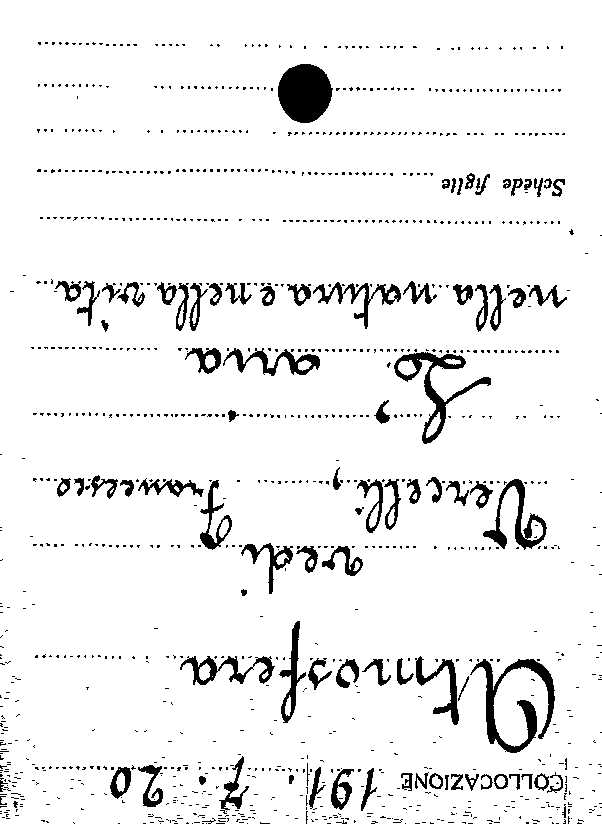 COLLOCAZIONE 191. 7. 20
Atmosfera
vedi
Vercelli, Francesco
L'aria
nella natura e nella vita
Schede figlie